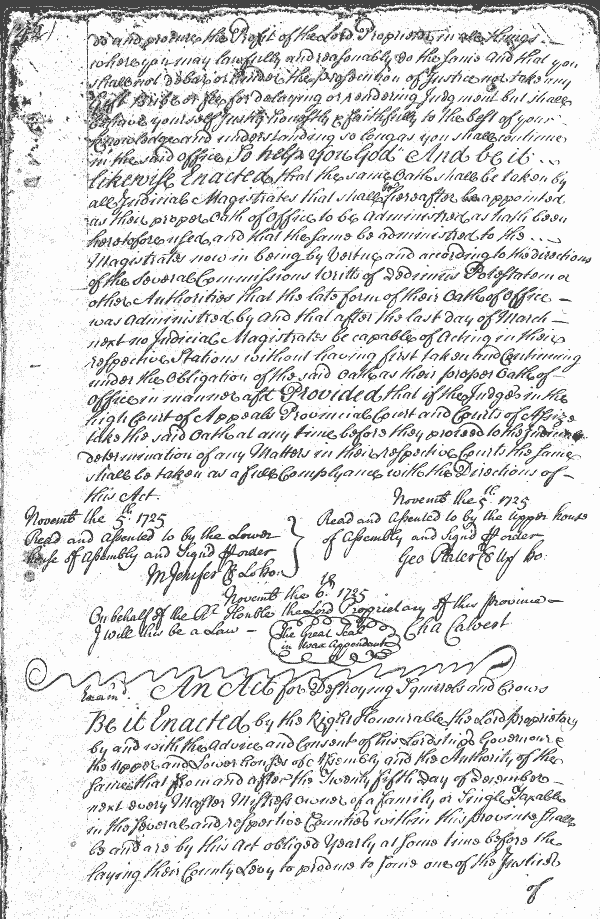 do and procure the Profit of the Lord Proprietor in all things
where you may lawfully and reasonably do the same and that you
shall not debar or hinder the prosecution of Justice nor take any
Gift Bribe or fee for delaying or rendering Judgment but shall
behave yourself Justly honestly & faithfully to the best of your
knowledge and understanding so long as you shall continue
in the said office So help You God" And be it
likewise Enacted that the same Oath shall be taken by
all Judicial Magistrates that shall hereafter be appointed
as their proper Oath of Office to be Administred as hath been
heretofore used, and that the same be administred to the
Magistrates now in being by Vertue and according to the directions
of the Several Commissions Writts of Dedimus Potestatem or
other Authorities that the late form of their Oath of Office
was Administred by And that after the last day of March
next no Judicial Magistrates be capable of Acting in their
respective Stations without having first taken and Continuing
under the Obligation of the said Oath as their proper Oath of
Office in manner afsd Provided that if the Judges in the
high Court of Appeals Provincial Court and Courts of Assize
take the said Oath at any time before they proceed to the
determination of any Matters in their respective Courts the same
shall be taken as a full Complyance with the Directions of
this Act.
Novemb the 5th. 1725
Read and assented to by the Lower
house of Assembly and Signd p order
M Jenifer Cl Lo ho:
Novemb the 5th. 1725
Read and assented to by the upper house
of Assembly and Signd p order
Geo Plater Cl Up ho:
Novemb the 6th. 1725
On behalf of the Rt Honble the Lord Proprietary of this Province
I will this be a Law
Cha Calvert
The Great Seal
in Wax Appendant
Exam'd. An Act for Destroying Squirrels and Crows
Be it Enacted by the Right Honourable the Lord proprietary
by and with the Advice and Consent of his Lordships Governour &
the upper and Lower houses of Assembly and the Authority of the
same that from and after the Twenty fifth Day of December
next every Master Mistress owner of a family or Single Taxable
in the several and respective Counties within this Province shall
be and are by this Act obliged Yearly at some time before the
laying their County Levy to produce to some one of the Justices
of